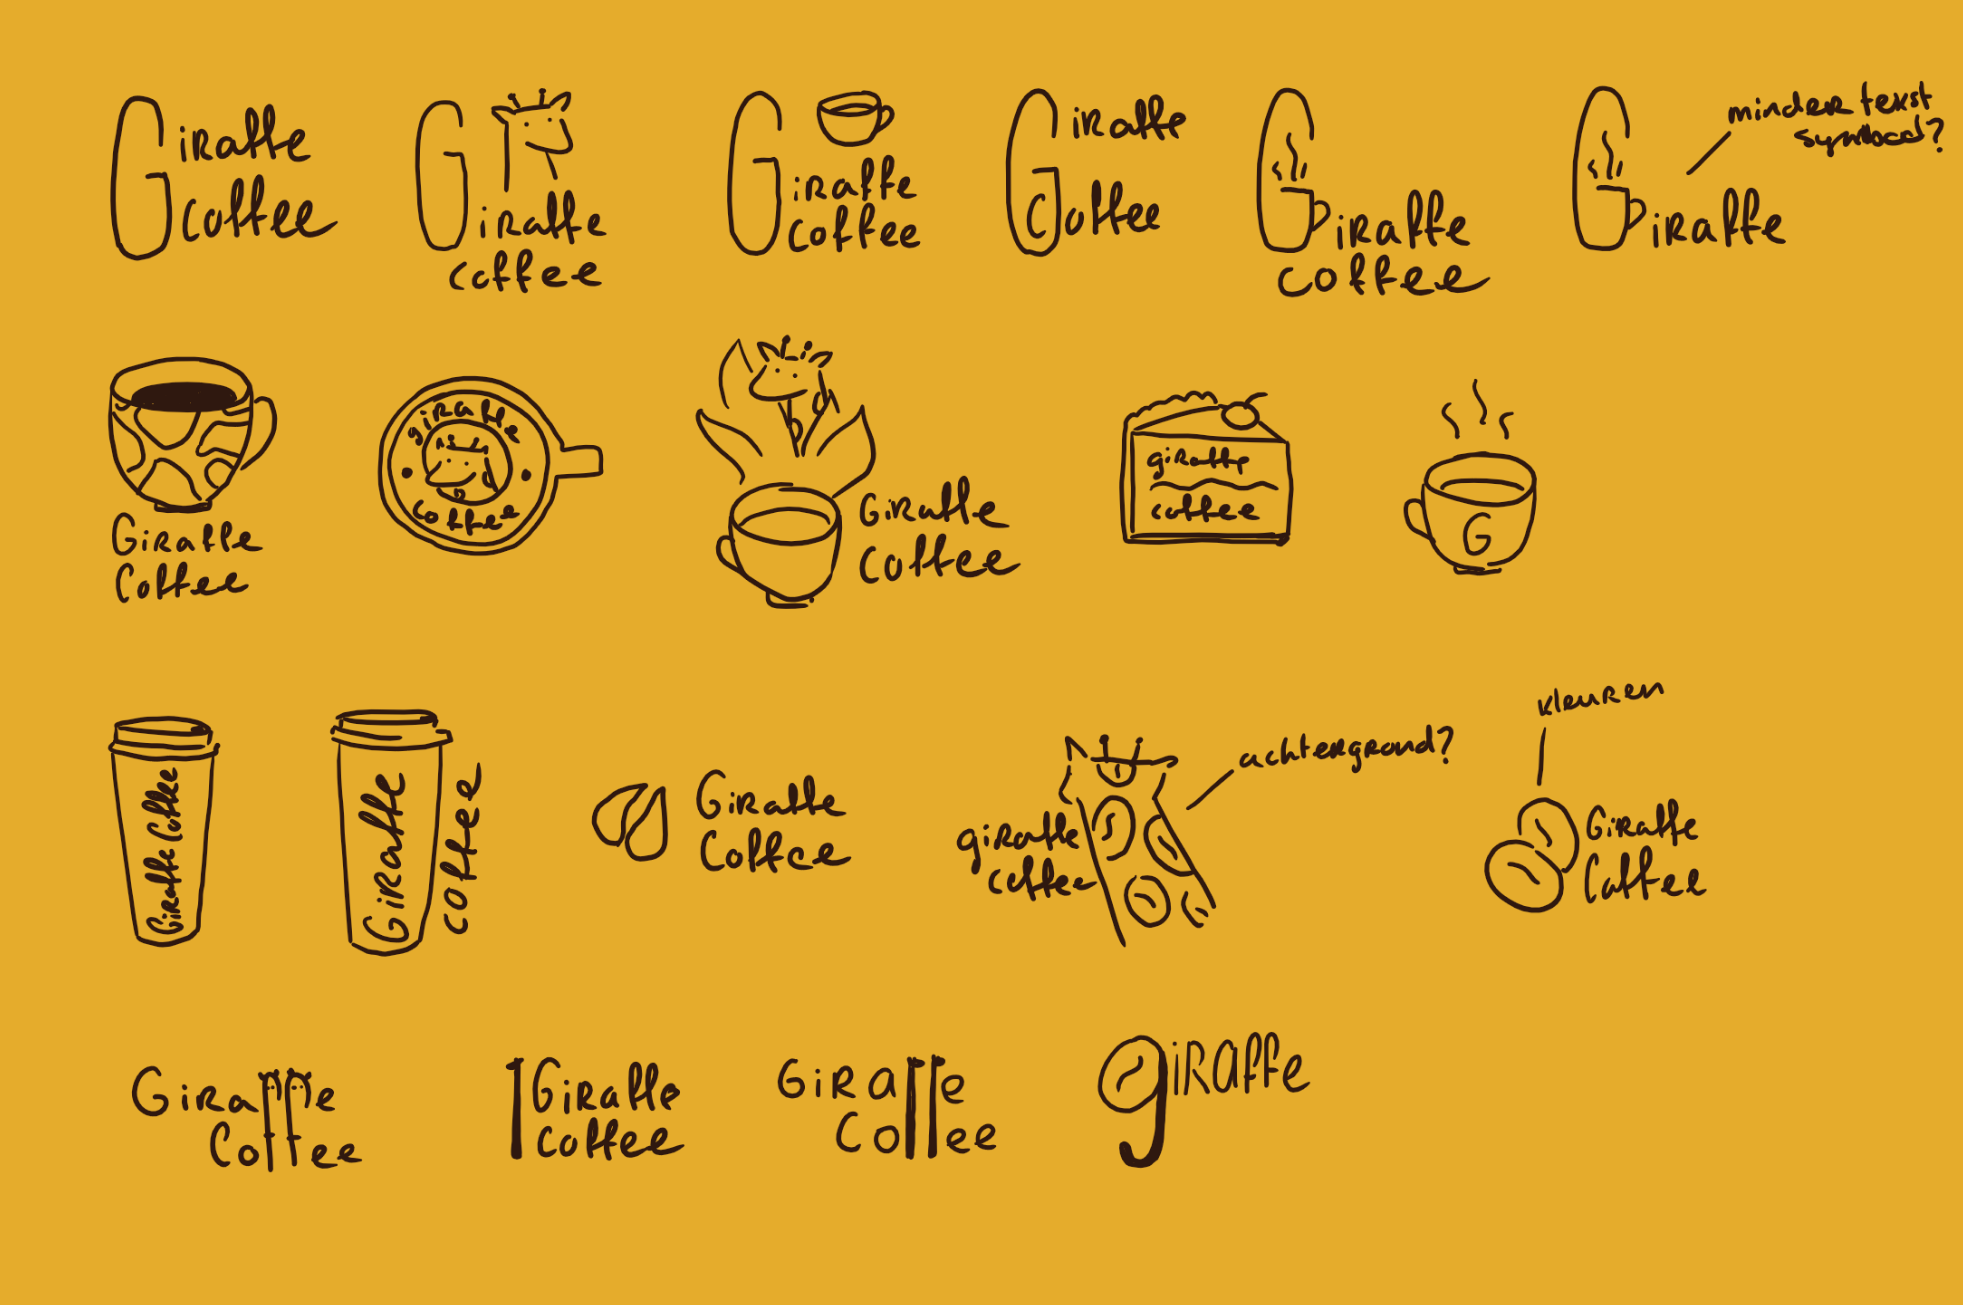 Giraffe
Coffee
Giraffe
coffee
Giraffe
coffee
Giraffe
Coffee
Giraffe
coffee
Giraffe
minder tekst
symbool?
Giraffe
Coffee
giraffe
coffee
Giraffe
Coffee
giraffe
coffee
G
Giraffe Coffee
Giraffe
coffee
Giraffe
Coffee
giraffe
coffee
achtergrond?
kleuren
Giraffe
Coffee
Giraffe
Coffee
Giraffe
Coffee
Giraffe
Coffee
giraffe